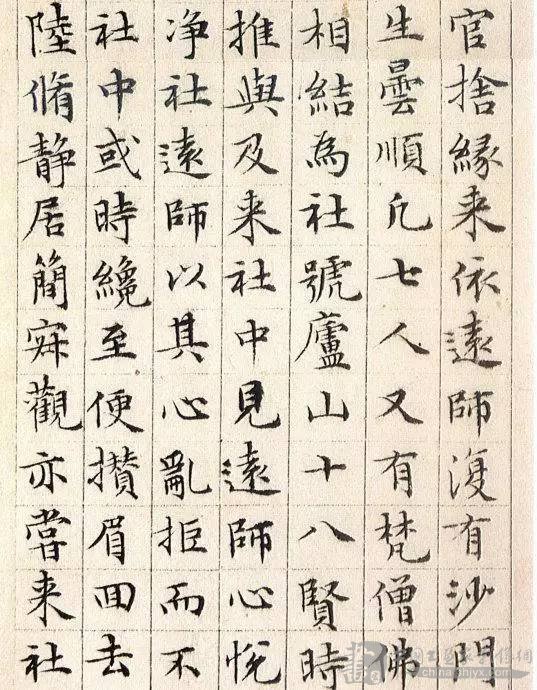 官捨緣来依遠師復有沙門
生曇順凡七人又有梵僧佛
相結為社號廬山十八賢時
推與及来社中見遠師心悅
净社遠師以其心亂拒而不
社中或時纔至便攅眉囬去
陸脩静居簡寂觀亦嘗来社
china.shjyx.com